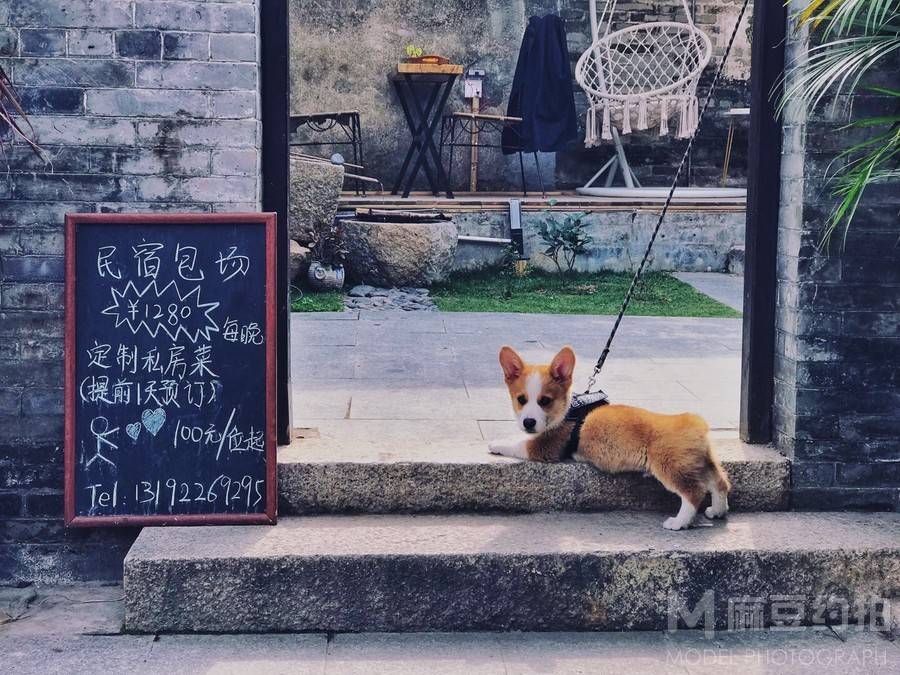 民宿包场
¥1280
每晚
定制私房菜
(提前1天预订)
100元/位起
Tel: 13192269295
M 麻豆约拍
MODEL PHOTOGRAPH